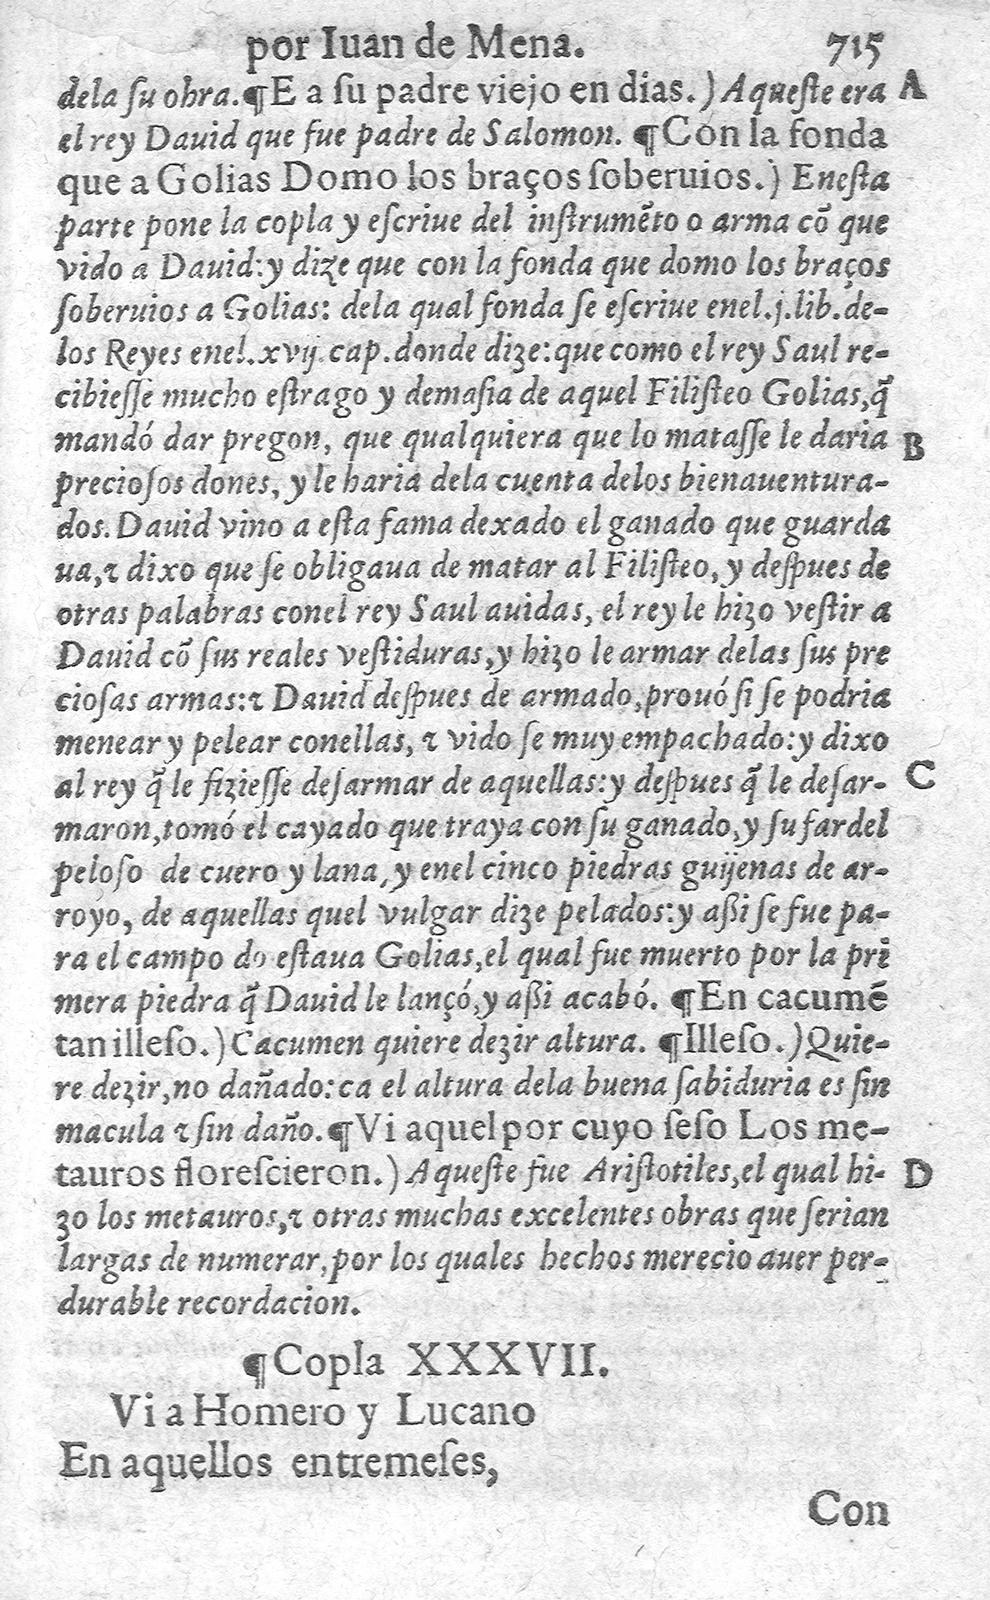 por Iuan de Mena. 715
dela ſu obra. ¶E a ſu padre viejo en dias.) Aqueſte era A
el rey Dauid que fue padre de Salomon. ¶Con la fonda
que a Golias Domo los braços ſoberuios.) Eneſta
parte pone la copla y eſcriue del inſtrumẽto o arma cõ que
vido a Dauid: y dize que con la fonda que domo los braços
ſoberuios a Golias: dela qual fonda ſe eſcriue enel.j.lib.de-
los Reyes enel.xvij.cap.donde dize: que como el rey Saul re-
cibieſſe mucho eſtrago y demaſia de aquel Filiſteo Golias,q̃
mandó dar pregon, que qualquiera que lo mataſſe le daria B
precioſos dones, y le haria dela cuenta delos bienauentura-
dos. Dauid vino a eſta fama dexado el ganado que guarda
ua,⁊ dixo que ſe obligaua de matar al Filiſteo, y deſpues de
otras palabras conel rey Saul auidas, el rey le hizo veſtir a
Dauid cõ ſus reales veſtiduras,y hizo le armar delas ſus pre
cioſas armas:⁊ Dauid deſpues de armado,prouó ſi ſe podria
menear y pelear conellas, ⁊ vido ſe muy empachado: y dixo
al rey q̃ le fizieſſe deſarmar de aquellas: y deſpues q̃ le deſar- C
maron,tomó el cayado que traya con ſu ganado,y ſu fardel
peloſo de cuero y lana, y enel cinco piedras guijenas de ar-
royo, de aquellas quel vulgar dize pelados: y aßi ſe fue pa-
ra el campo do eſtaua Golias,el qual fue muerto por la pri
mera piedra q̃ Dauid le lançó,y aßi acabó. ¶En cacumẽ
tan illeſo.) Cacumen quiere dezir altura. ¶Illeſo.) Quie-
re dezir,no dañado: ca el altura dela buena ſabiduria es ſin
macula ⁊ ſin daño. ¶Vi aquel por cuyo ſeſo Los me-
tauros floreſcieron.) Aqueſte fue Ariſtotiles,el qual hi- D
zo los metauros,⁊ otras muchas excelentes obras que ſerian
largas de numerar,por los quales hechos merecio auer per-
durable recordacion.
¶Copla XXXVII.
Vi a Homero y Lucano
En aquellos entremeſes,
Con